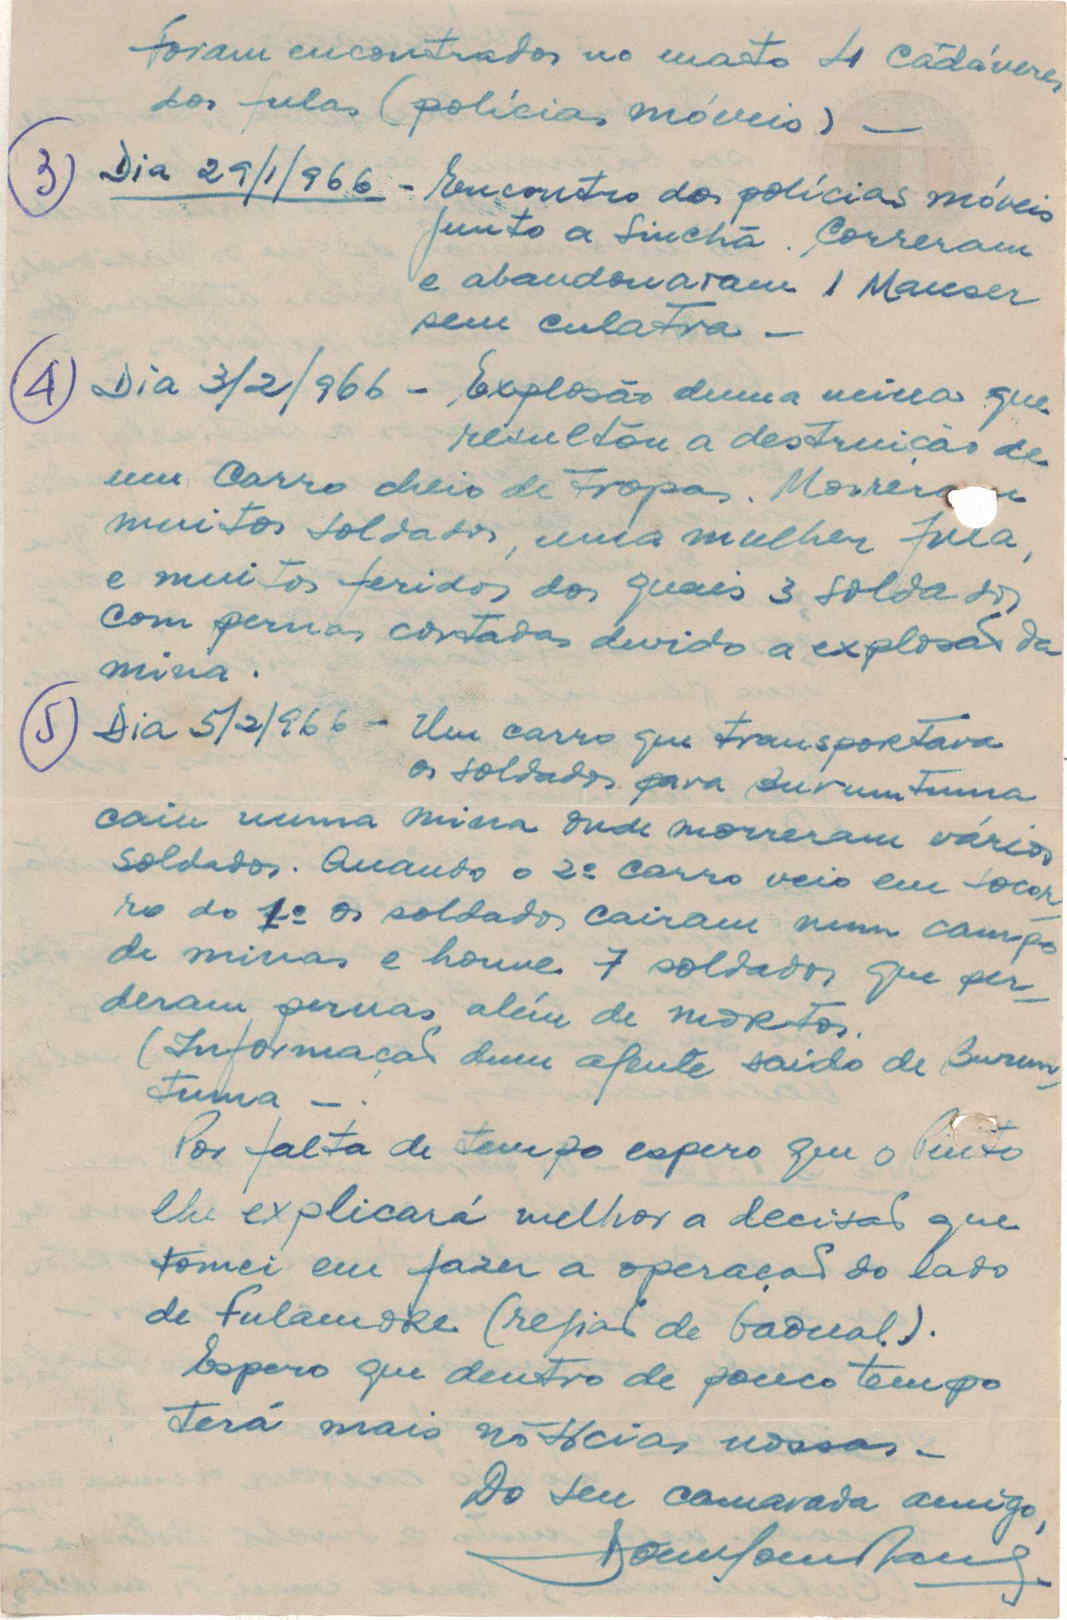 foram encontrados no mato 4 cadáveres
dos fulas (polícias móveis) —
3) Dia 29/1/966 - Encontro dos polícias móveis
junto a Sinchã. Correram
e abandonaram 1 Mauser
sem culatra —
4) Dia 3/2/966 - Explosão duma mina que
resultou a destruição de
um Carro cheio de tropas. Morreram
muitos soldados, uma mulher fula,
e muitos feridos dos quais 3 soldados
com pernas cortadas devido a explosão da
mina.
5) Dia 5/2/966 - Um carro que transportava
os soldados para Buruntuma
caiu numa mina onde morreram vários
soldados. Quando o 2º carro veio em socor-
ro do 1º os soldados cairam num campo
de minas e houve 7 soldados que per-
deram pernas além de mortos.
(Informação dum agente saido de Burun-
tuma —.
Por falta de tempo espero que o Pinto
lhe explicará melhor a decisão que
tomei em fazer a operação do lado
de Fulamore (região de Gadual).
Espero que dentro de pouco tempo
terá mais notícias nossas —
Do seu camarada amigo,